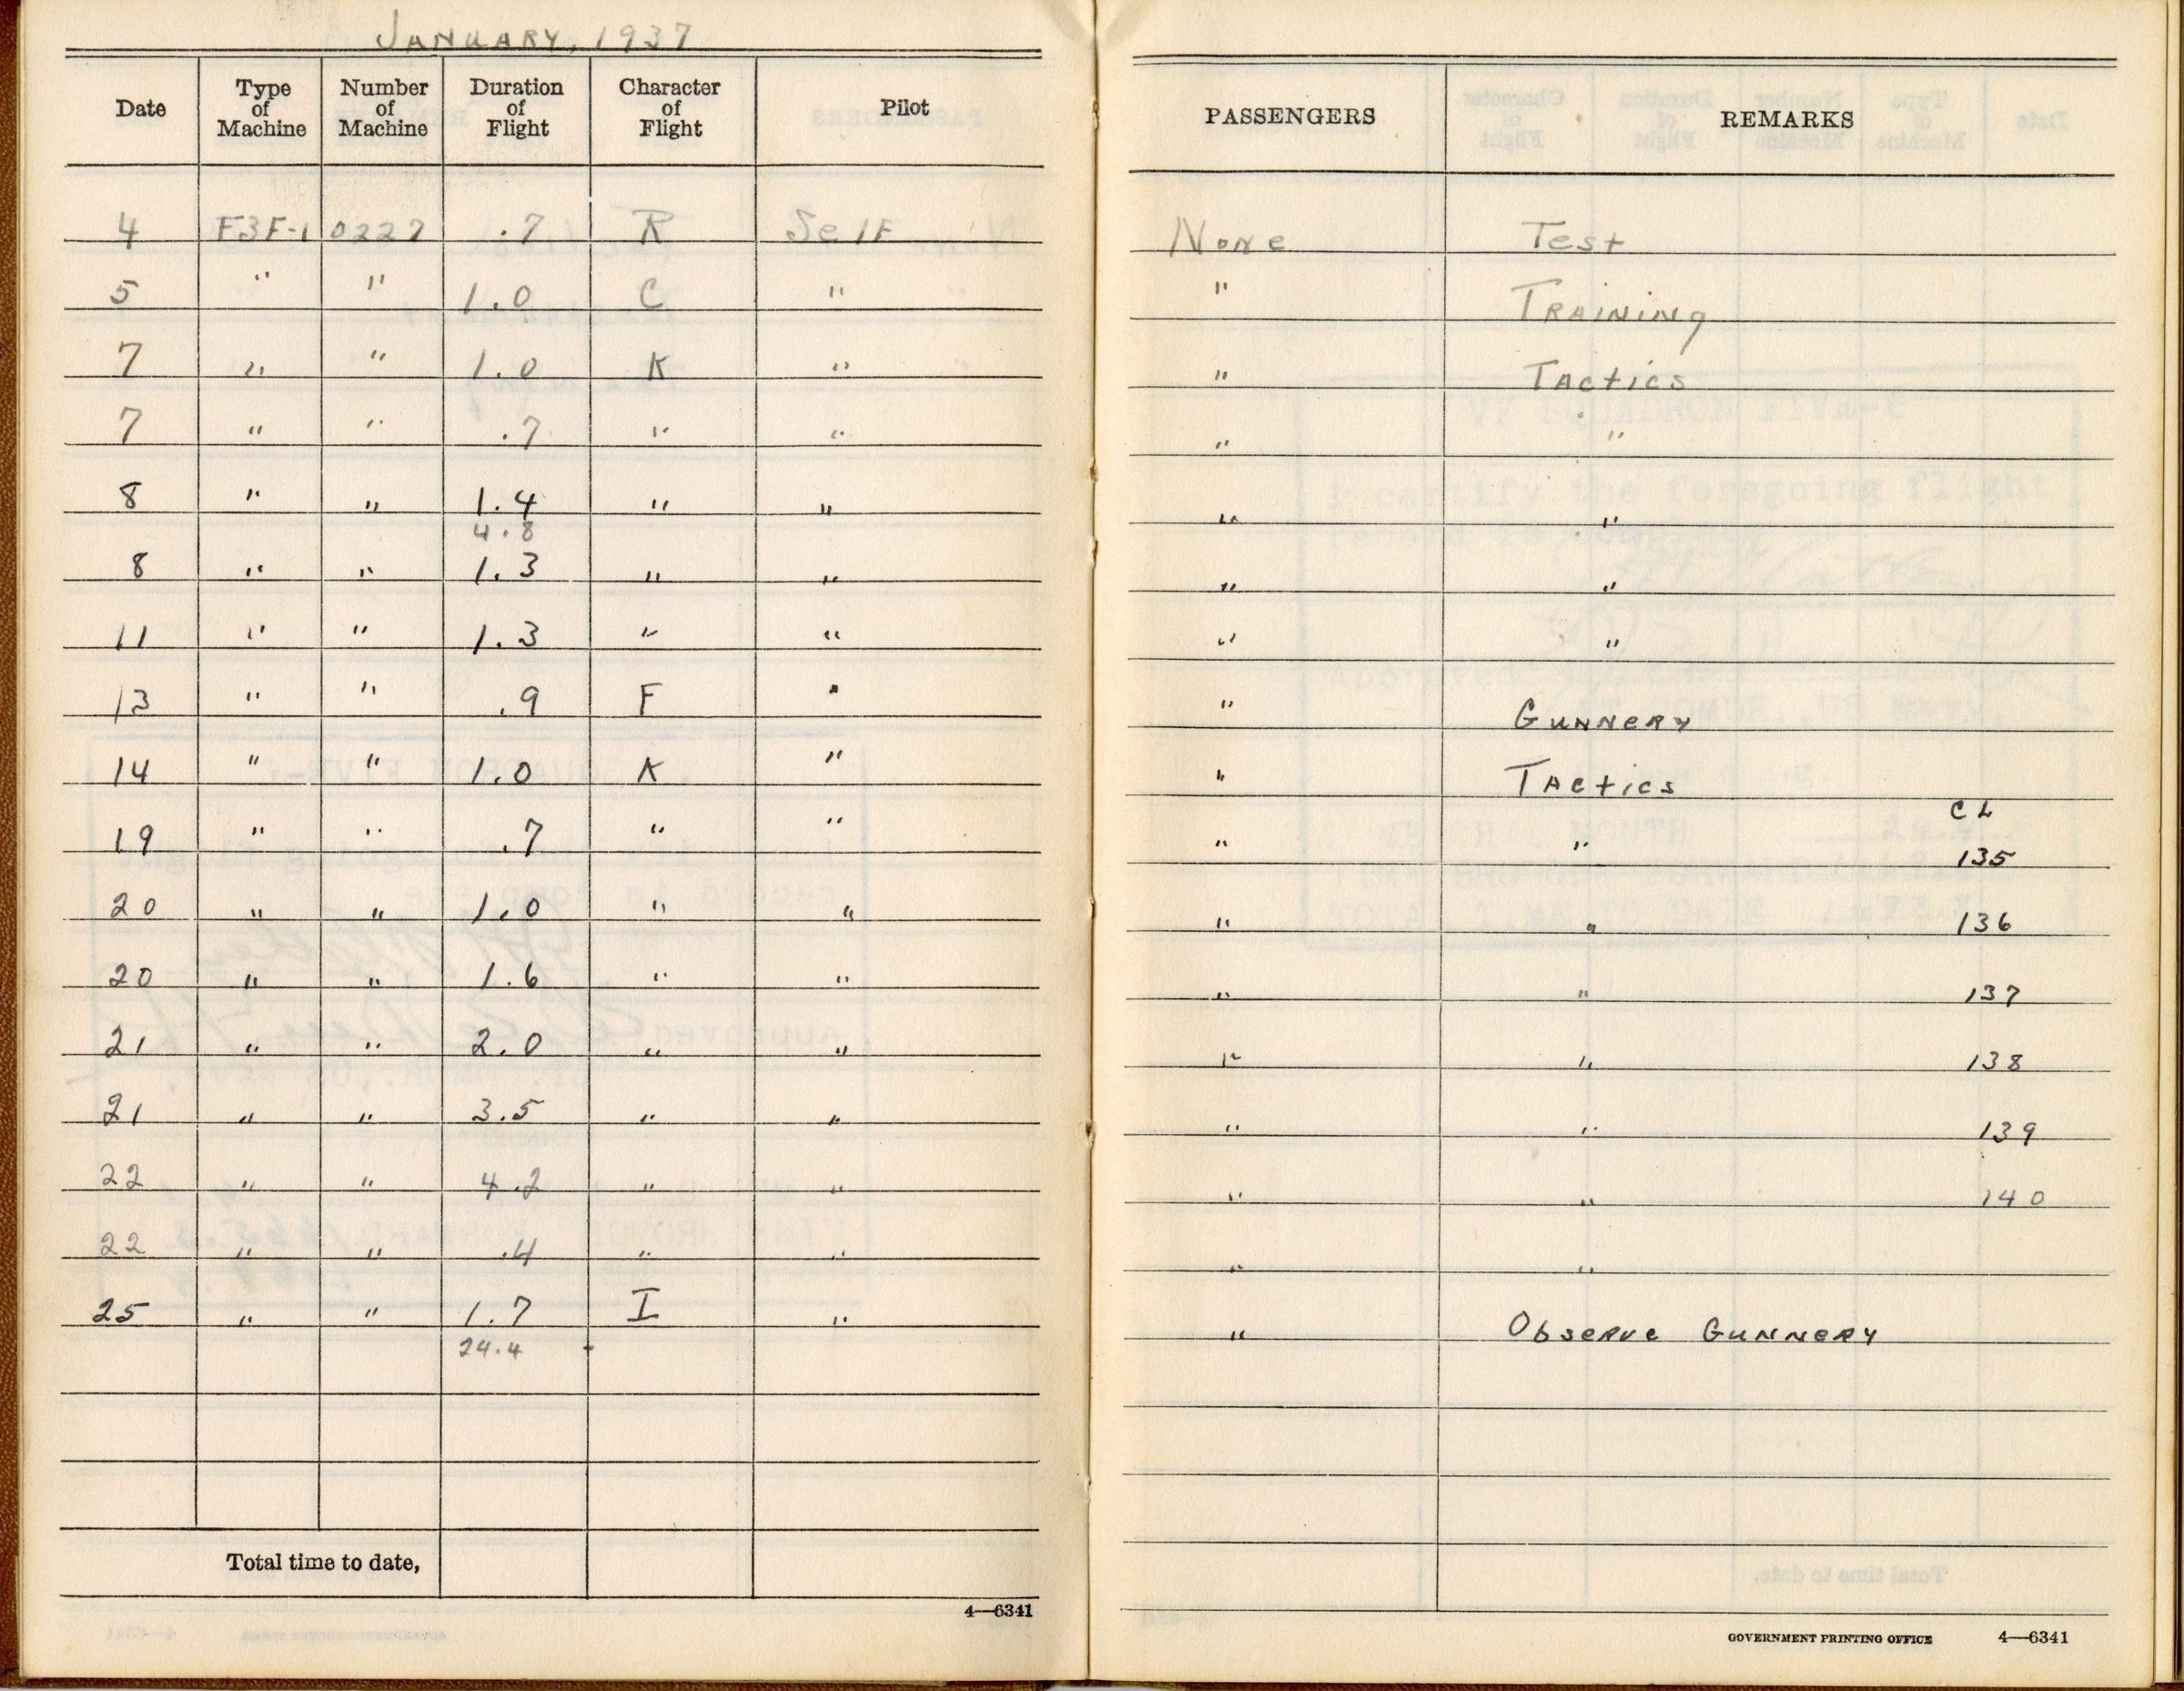 JANUARY, 1937
Date Type of Machine Number of Machine Duration of Flight Character of Flight Pilot PASSENGERS REMARKS
4 F3F-1 0227 .7 R Self None Test
5 " " 1.0 C " " Training
7 " " 1.0 K " " Tactics
7 " " .7 " " " "
8 " " 1.4 " " " "
4.8
8 " " 1.3 " " " "
11 " " 1.3 " " " "
13 " " .9 F " " Gunnery
14 " " 1.0 K " " Tactics
CL
19 " " .7 " " " " 135
20 " " 1.0 " " " " 136
20 " " 1.6 " " " " 137
21 " " 2.0 " " " " 138
21 " " 3.5 " " " " 139
22 " " 4.2 " " " " 140
22 " " .4 " " " "
25 " " 1.7 I " " Observe Gunnery
24.4
Total time to date,
4—6341
GOVERNMENT PRINTING OFFICE 4—6341